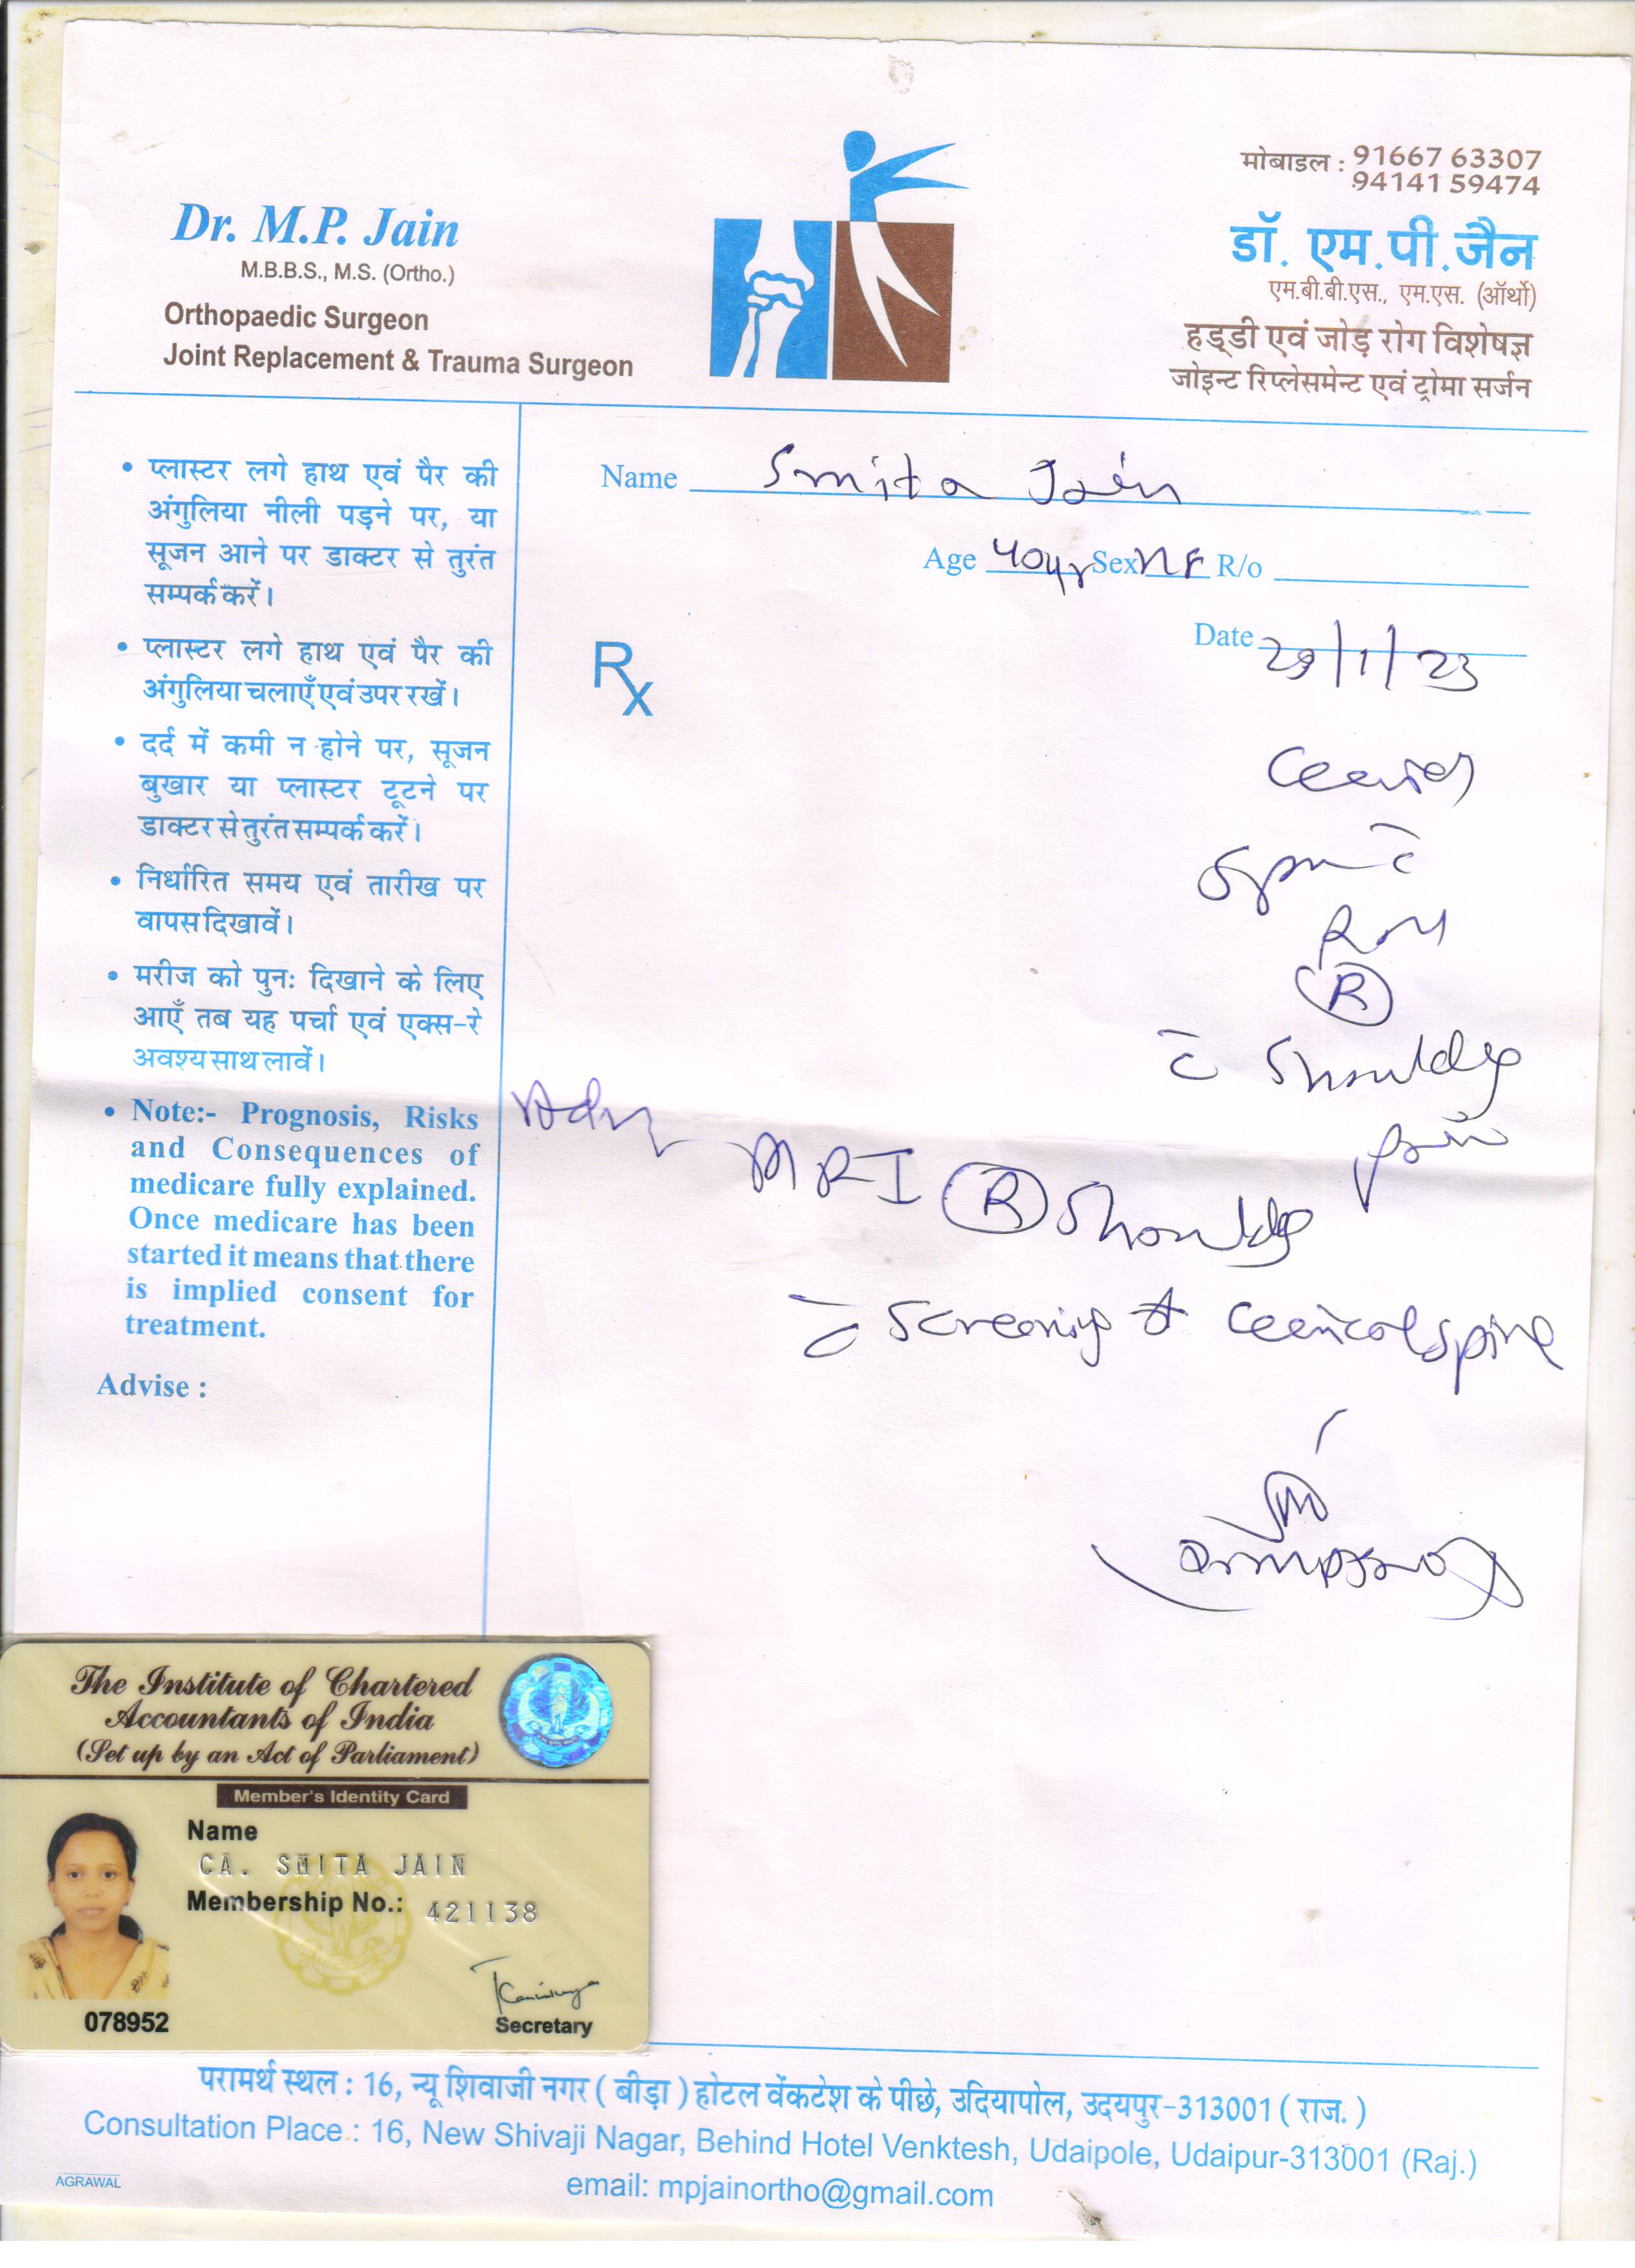 मोबाइल : 91667 63307
94141 59474
Dr. M.P. Jain
M.B.B.S., M.S. (Ortho.)
Orthopaedic Surgeon
Joint Replacement & Trauma Surgeon
डॉ. एम.पी.जैन
एम.बी.बी.एस., एम.एस. (ऑर्थो)
हड्डी एवं जोड़ रोग विशेषज्ञ
जोइन्ट रिप्लेसमेन्ट एवं ट्रोमा सर्जन
• प्लास्टर लगे हाथ एवं पैर की
अंगुलिया नीली पड़ने पर, या
सूजन आने पर डाक्टर से तुरंत
सम्पर्क करें।
• प्लास्टर लगे हाथ एवं पैर की
अंगुलिया चलाएँ एवं उपर रखें।
• दर्द में कमी न होने पर, सूजन
बुखार या प्लास्टर टूटने पर
डाक्टर से तुरंत सम्पर्क करें।
• निर्धारित समय एवं तारीख पर
वापस दिखावें।
• मरीज को पुनः दिखाने के लिए
आएँ तब यह पर्चा एवं एक्स-रे
अवश्य साथ लावें।
• Note:- Prognosis, Risks
and Consequences of
medicare fully explained.
Once medicare has been
started it means that there
is implied consent for
treatment.
Advise :
Name Smita Jain
Age 40yr Sex F R/o
Date 29/1/23
Rx
R
c̄ Shoulder
pain
Adv
MRI R Shoulder
c̄ Screening of cervical spine
The Institute of Chartered
Accountants of India
(Set up by an Act of Parliament)
Member's Identity Card
Name
CA. SMITA JAIN
Membership No.: 421138
078952
Secretary
परामर्थ स्थल : 16, न्यू शिवाजी नगर ( बीड़ा ) होटल वेंकटेश के पीछे, उदियापोल, उदयपुर-313001 ( राज. )
Consultation Place : 16, New Shivaji Nagar, Behind Hotel Venktesh, Udaipole, Udaipur-313001 (Raj.)
AGRAWAL
email: mpjainortho@gmail.com